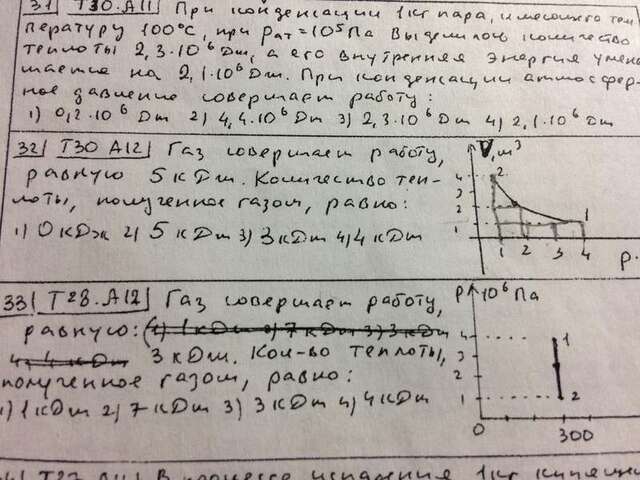 31 T30.A11 При конденсации 1кг пара, имеющего тем
пературу 100°C, при Pат=10⁵Па выделилось количество
теплоты 2,3·10⁶Дж, а его внутренняя энергия умень
шается на 2,1·10⁶Дж. При конденсации атмосфер-
ное давление совершает работу:
1) 0,2·10⁶Дж 2) 4,4·10⁶Дж 3) 2,3·10⁶Дж 4) 2,1·10⁶Дж
32 T30 A12 Газ совершает работу,
равную 5 кДж. Количество теп-
лоты, полученное газом, равно:
1) 0 кДж 2) 5 кДж 3) 3 кДж 4) 4 кДж
V, м³
4 2
3
2
1 1
1 2 3 4 P.
33 T28.A12 Газ совершает работу,
равную: (1) 1 кДж 2) 7 кДж 3) 3 кДж
4) 4 кДж 3 кДж. Кол-во теплоты,
полученное газом, равно:
1) 1 кДж 2) 7 кДж 3) 3 кДж 4) 4 кДж
P 10⁶ Па
4 1
3
2
1 2
0 300
T27 A11 В процессе испарения 1кг кипящ